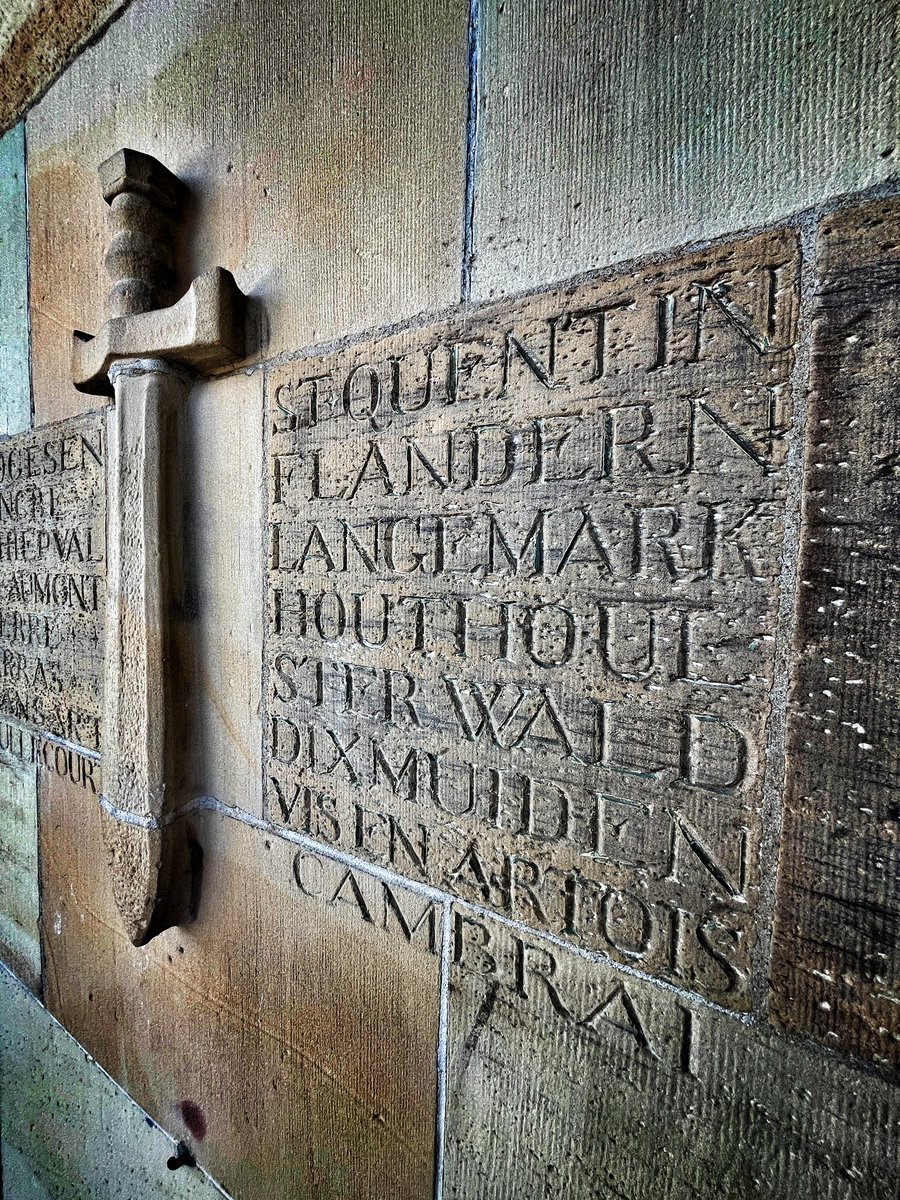 OGESEN
NCRE
THIEPVAL
EAUMONT
ERRE
RRAS
ENSART
ULLECOUR
ST QUENTIN
FLANDERN
LANGEMARK
HOUTHOUL-
STER WALD
DIXMUIDEN
VIS EN ARTOIS
CAMBRAI